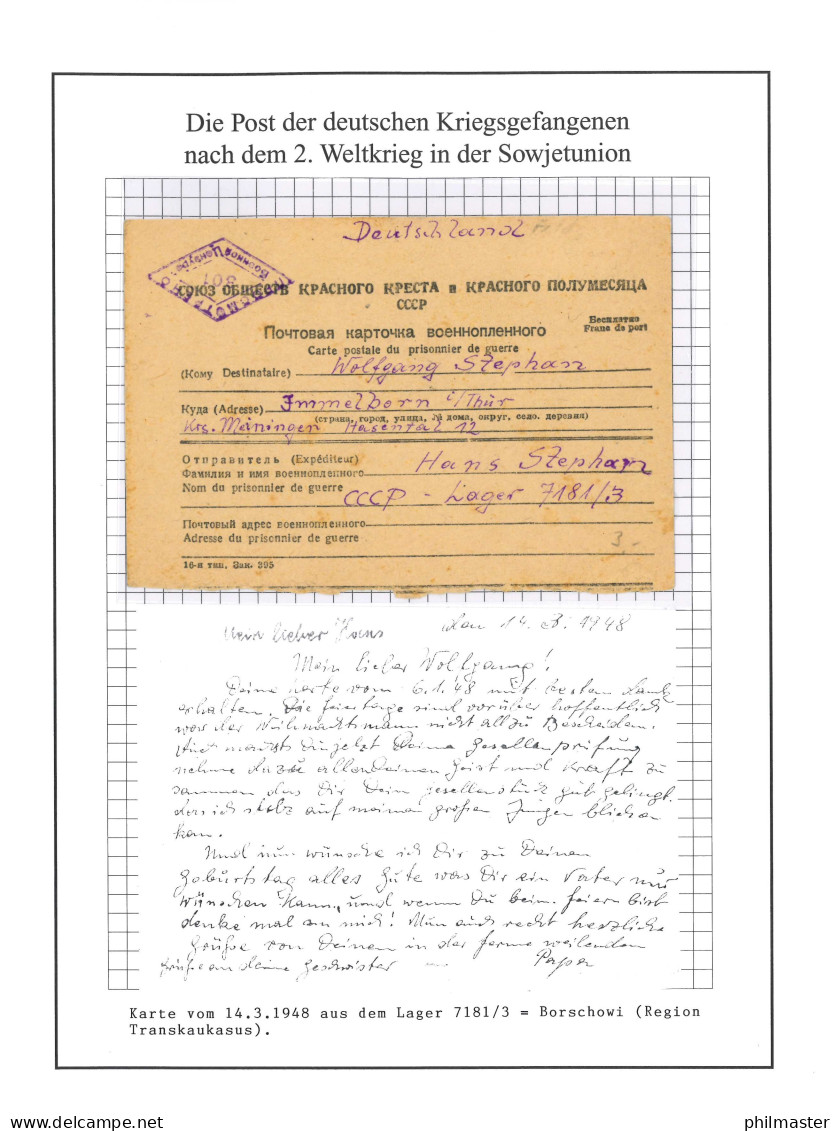 Die Post der deutschen Kriegsgefangenen
nach dem 2. Weltkrieg in der Sowjetunion
Deutschland
ПРОСМОТРЕНО
Военной Цензурой
301
СОЮЗ ОБЩЕСТВ КРАСНОГО КРЕСТА и КРАСНОГО ПОЛУМЕСЯЦА
СССР
Бесплатно
Franc de port
Почтовая карточка военнопленного
Carte postale du prisonnier de guerre
(Кому Destinataire) Wolfgang Stephan
Куда (Adresse) Immelborn i/Thür
(страна, город, улица, № дома, округ, село, деревня)
Krs. Meiningen Hasental 12
Отправитель (Expéditeur) Hans Stephan
Фамилия и имя военнопленного
Nom du prisonnier de guerre CCCP - Lager 7181/3
Почтовый адрес военнопленного
Adresse du prisonnier de guerre
3.-
16-я тип. Зак. 395
Mein lieber Hans den 14. 3. 1948
Mein lieber Wolfgang!
Deine Karte vom 6.1.48 mit bestem Dank
erhalten. Die Feiertage sind vorüber hoffentlich
war der Weihnachtsmann nicht allzu bescheiden.
machst Du jetzt Deine Gesellenprüfung
nehme dazu allen Deinen Geist und Kraft zu
sammen das Dir Dein Gesellenstück gut gelingt.
das ich stolz auf meinen großen Jungen blicken
kan.
Und nun wünsche ich Dir zu Deinen
Geburtstag alles Gute was Dir ein Vater nur
wünschen kann, und wenn Du beim feiern bist
denke mal an mich! Nun auch recht herzliche
Grüße von Deinen in der ferne weilenden
Grüße an deine Geschwister Papa
Karte vom 14.3.1948 aus dem Lager 7181/3 = Borschowi (Region
Transkaukasus).
philmaster